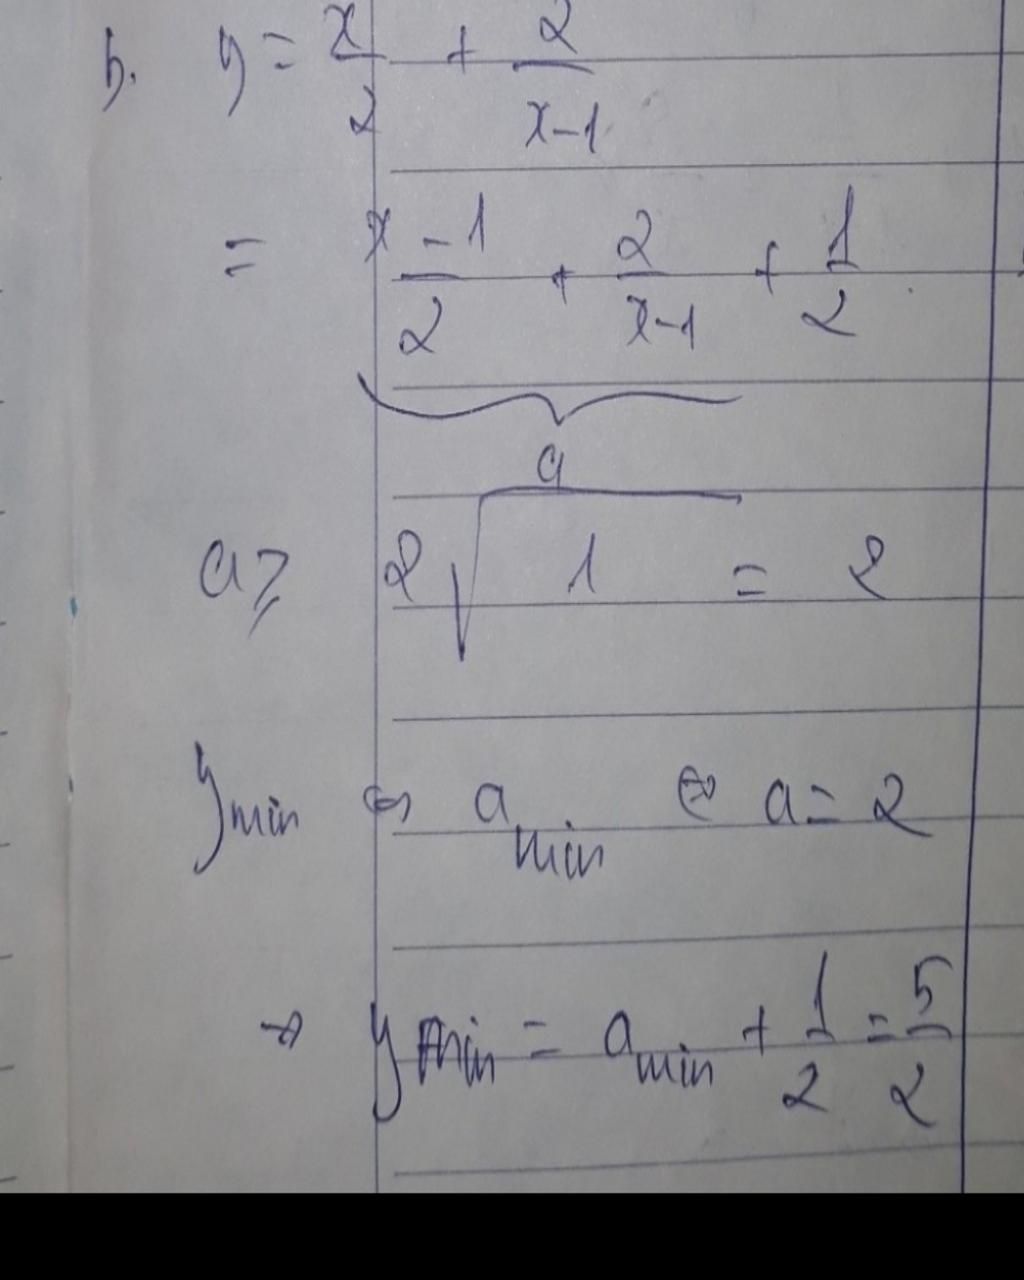 b. y = x/2 + 2/(x-1)
= (x-1)/2 + 2/(x-1) + 1/2
a
a ≥ 2√1 = 2
y min ⇔ a min ⇔ a = 2
→ y min = a min + 1/2 = 5/2